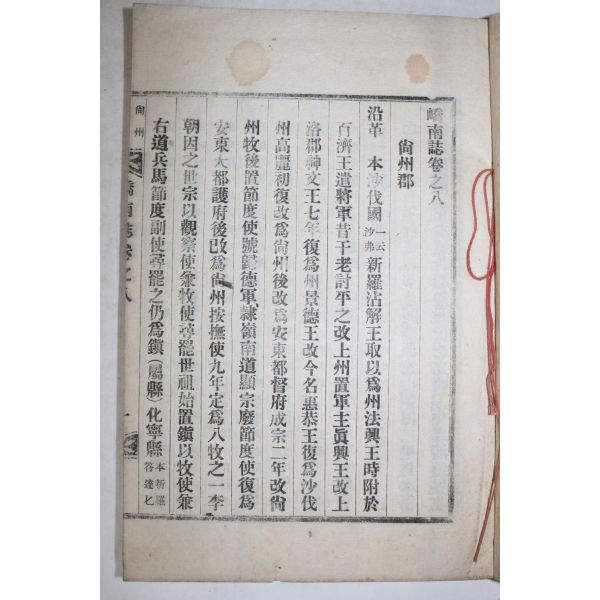 嶠南誌卷之八
尙州郡
沿革 本沙伐國一云沙弗新羅沾解王取以爲州法興王時附於
百濟王遣將軍昔于老討平之改上州置軍主眞興王改上
洛郡神文王七年復爲州景德王改今名惠恭王復爲沙伐
州高麗初復改爲尙州後改爲安東都督府成宗二年改尙
州牧後置節度使號歸德軍隷嶺南道顯宗廢節度使復爲
安東大都護府後改爲尙州按撫使九年定爲八牧之一李
朝因之世宗以觀察使兼牧使尋罷世祖始置鎭以牧使兼
右道兵馬節度副使尋罷之仍爲鎭(屬縣)化寧縣本新羅答達匕
尙州
嶠南誌卷之八
一